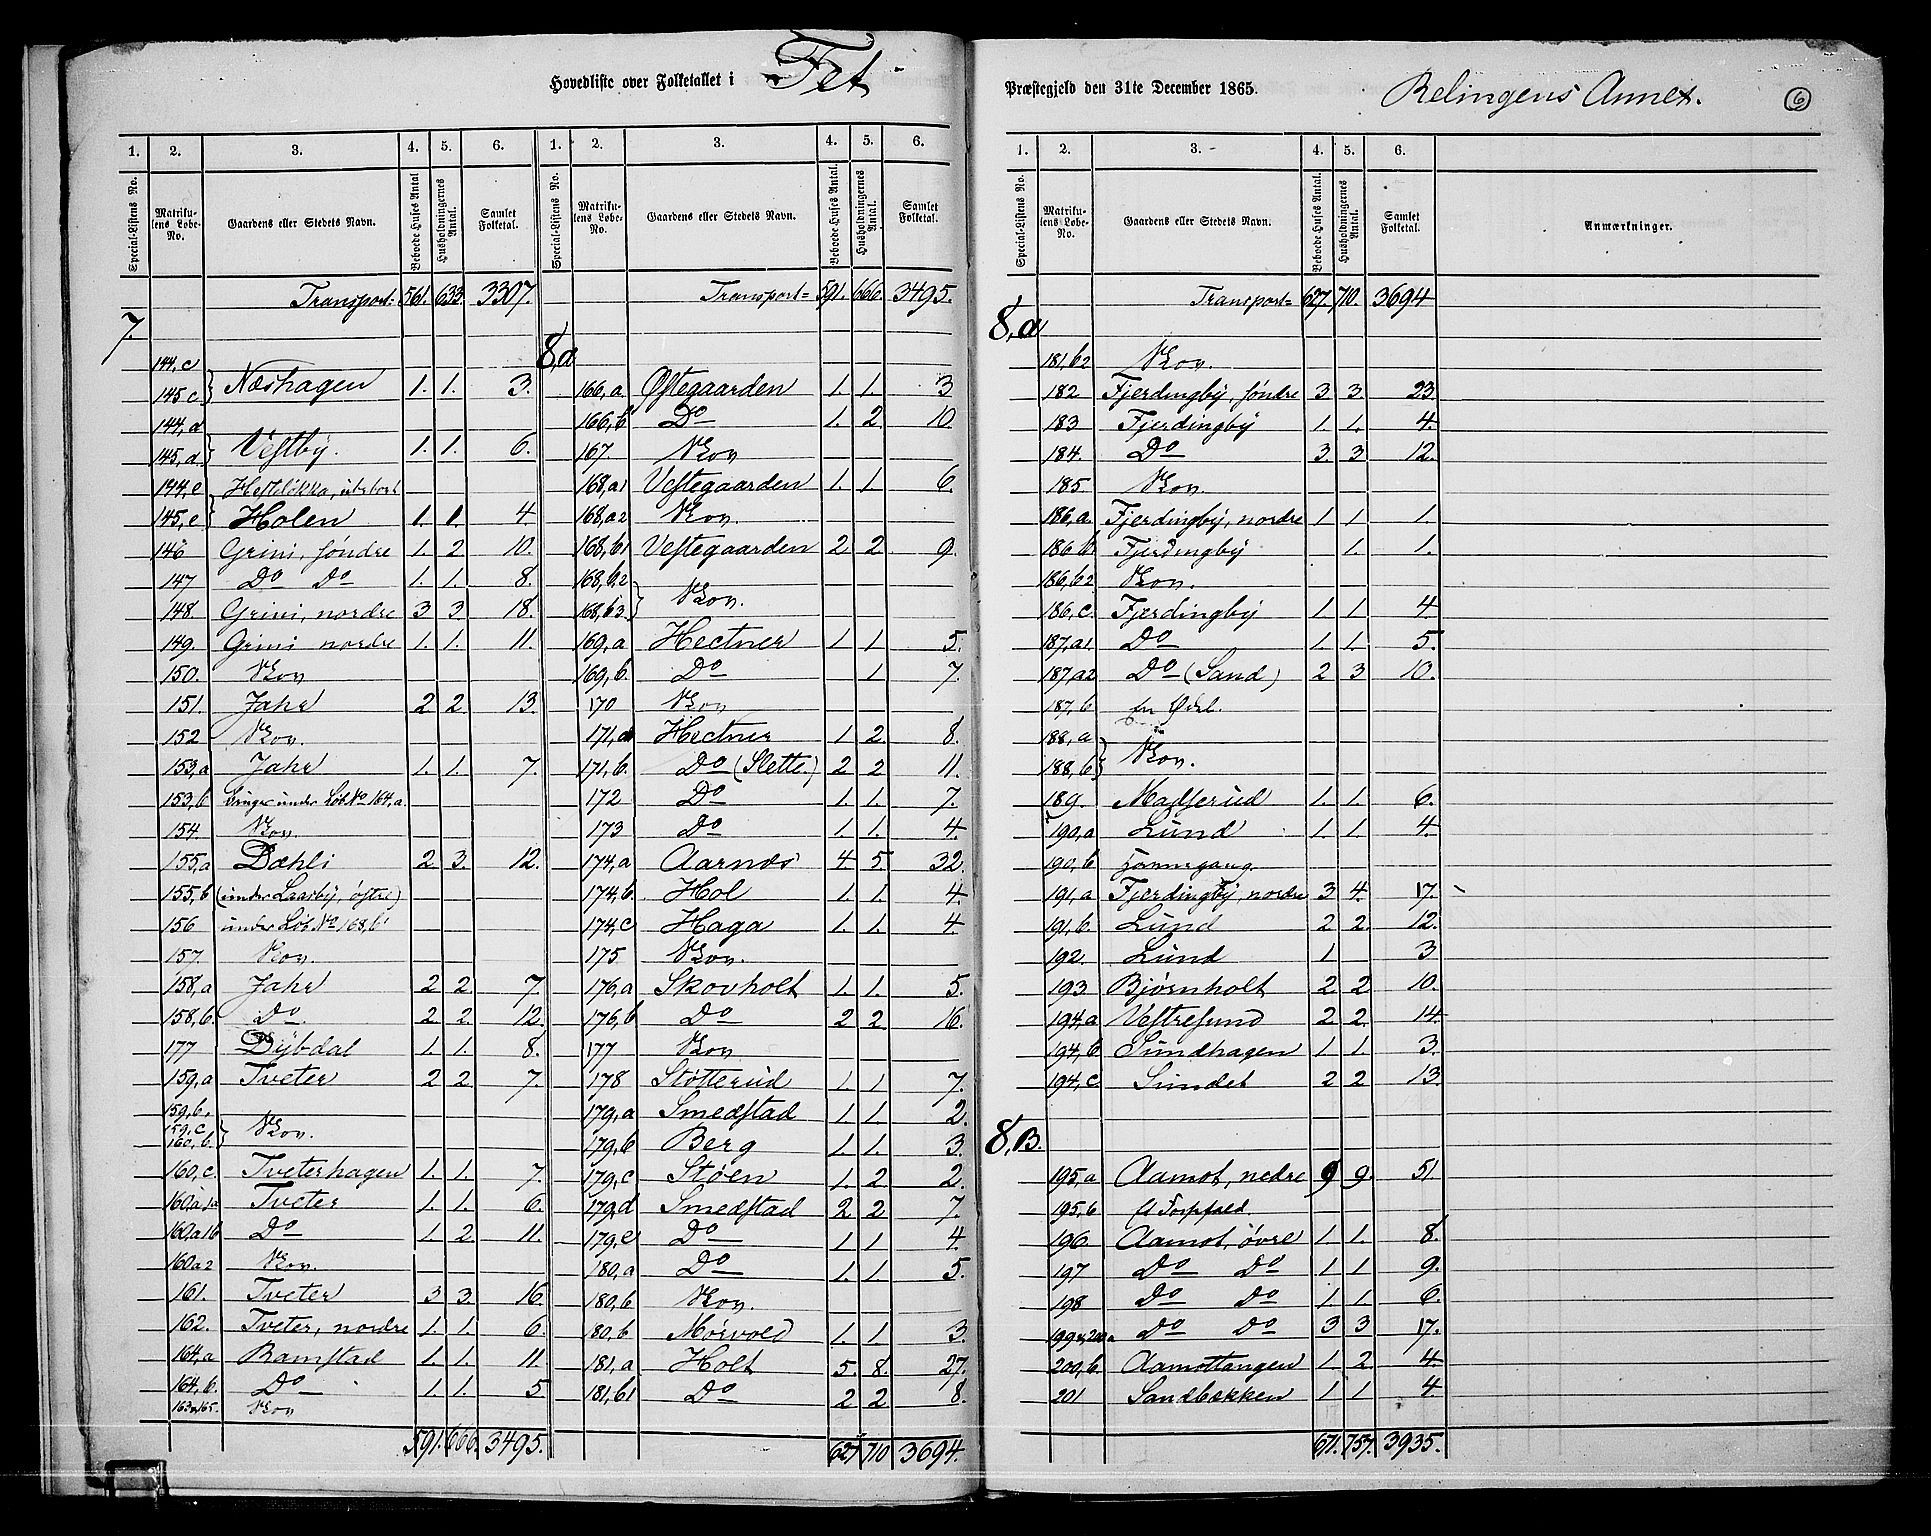 Hovedliste over Folketallet i Fet
1. 2. 3. 4. 5. 6. 1. 2. 3. 4. 5. 6.
Special-Listens No. Matrikulens Løbe-No. Gaardens eller Stedets Navn. Beboede Huses Antal Husholdningernes Antal. Samlet Folketal. Special-Listens No. Matrikulens Løbe-No. Gaardens eller Stedets Navn. Beboede Huses Antal. Husholdningernes Antal. Samlet Folketal.
Transport= 561. 633. 3307.
7.
144,c
145,c } Næshagen 1. 1. 3.
144,d
145,d } Vestby. 1. 1. 6.
144,e Hesteløkka, ubebygt
145,e } Holen 1. 1. 4
146 Grini, søndre 1. 2 10.
147 Do Do 1. 1. 8.
148. Grini, nordre 3 3. 18.
149. Grini nordre 1. 1. 11.
150. Skov
151. Jahr 2 2. 13.
152 Skov.
153,a Jahr 1. 1. 7.
153,b bruges under Løb No 164,a.
154. Skov.
155,a Dæhli 2 3. 12.
155,b (under Laasby, østre)
156 under Løb No 168,b1
157. Skov.
158,a Jahr 2 2 7.
158,b. Do. 2 2. 12.
177 Dybdal 1. 1. 8.
159,a Tveter 2 2 7.
159,b.
159,c
160,b. } Skov.
160,c. Tveterhagen 1. 1. 7.
160,a1a Tveter 1. 1. 6.
160,a1b Do 1. 2. 11.
160a2 Skov.
161. Tveter 3 3. 16.
162. Tveter, nordre 1. 1. 6.
164,a Ramstad 1. 1. 11.
164,b. Do 1. 1. 5
163&165. Skov
591. 666. 3495.
Transport= 591. 666. 3495.
8,a
166,a Østegaarden 1. 1. 3
166,b Do 1. 2 10
167 Skov
168,a1 Vestegaarden 1. 1 6.
168,a2 Skov.
168,b1 Vestegaarden 2 2 9.
168,b2
168,b3 } Skov.
169,a Hectner 1. 1 5.
169,b. Do 1 7.
170 Skov
171,a Hectner 1 2 8.
171,b. Do (Slette.) 2 2 11.
172 Do 1. 1. 7.
173 Do 1. 1. 4.
174,a Aarnæs 4. 5. 32.
174,b. Hol 1. 1. 4.
174,c Haga 1. 1. 4
175 Skov.
176,a Skovholt 1. 1. 5.
176,b Do 2 2 16.
177 Skov
178 Støtterud 1. 1 7.
179,a Smedstad 1. 1. 2.
179,b Berg 1. 1. 3.
179,c Støen 1. 2 2.
179,d Smedstad 2 2 7.
179,e Do 1. 1 4.
180,a Do 1. 1 5.
180,b Skov.
180,b Mørvold 1. 1 3.
181,a Holt 5. 8. 27.
181,b1 Do 2 2 8.
627 710 3694.
Præstegjeld den 31te December 1865. Relingens Annex. 6
1. 2. 3. 4. 5. 6.
Special-Listens No. Matrikulens Løbe-No. Gaardens eller Stedets Navn. Beboede Huses Antal. Husholdningernes Antal. Samlet Folketal. Anmærkninger.
Transport= 627. 710. 3694
8,a
181,b2 Skov.
182 Fjerdingby, søndre 3 3 23
183 Fjerdingby 1 1. 4.
184. Do 3. 3 12.
185. Skov.
186,a. Fjerdingby, nordre 1 1 1.
186 b. Fjerdingby 1. 1.
186,b2 Skov.
186,c. Fjerdingby 1 1 4
187,a1 Do 1. 1. 5.
187,a2 Do (Sand) 2 3 10.
187,b
188,a
188,b } Skov.
189. Madserud 1. 1. 6.
190,a Lund 1. 1. 4
190,b
191,a Fjerdingby, nordre 3 4. 17.
191,b. Lund 2 2. 12.
192. Lund 1 3
193 Bjørnholt 2. 2 10.
194,a Vestresund 2 2. 14.
194,b Sundhagen 1 1. 3.
194,c Sundet 2 2 13.
8,B.
195,a Aamot, nedre 9 9. 51.
195,b
196 Aamot, øvre 1. 1. 8.
197 Do Do 1 1 9.
198 Do Do 1. 1. 6.
199&200a Do Do 3 3 17.
200,b. Aamottangen 1. 2 4
201 Sandbækken 1 1 4.
671. 757. 3935.